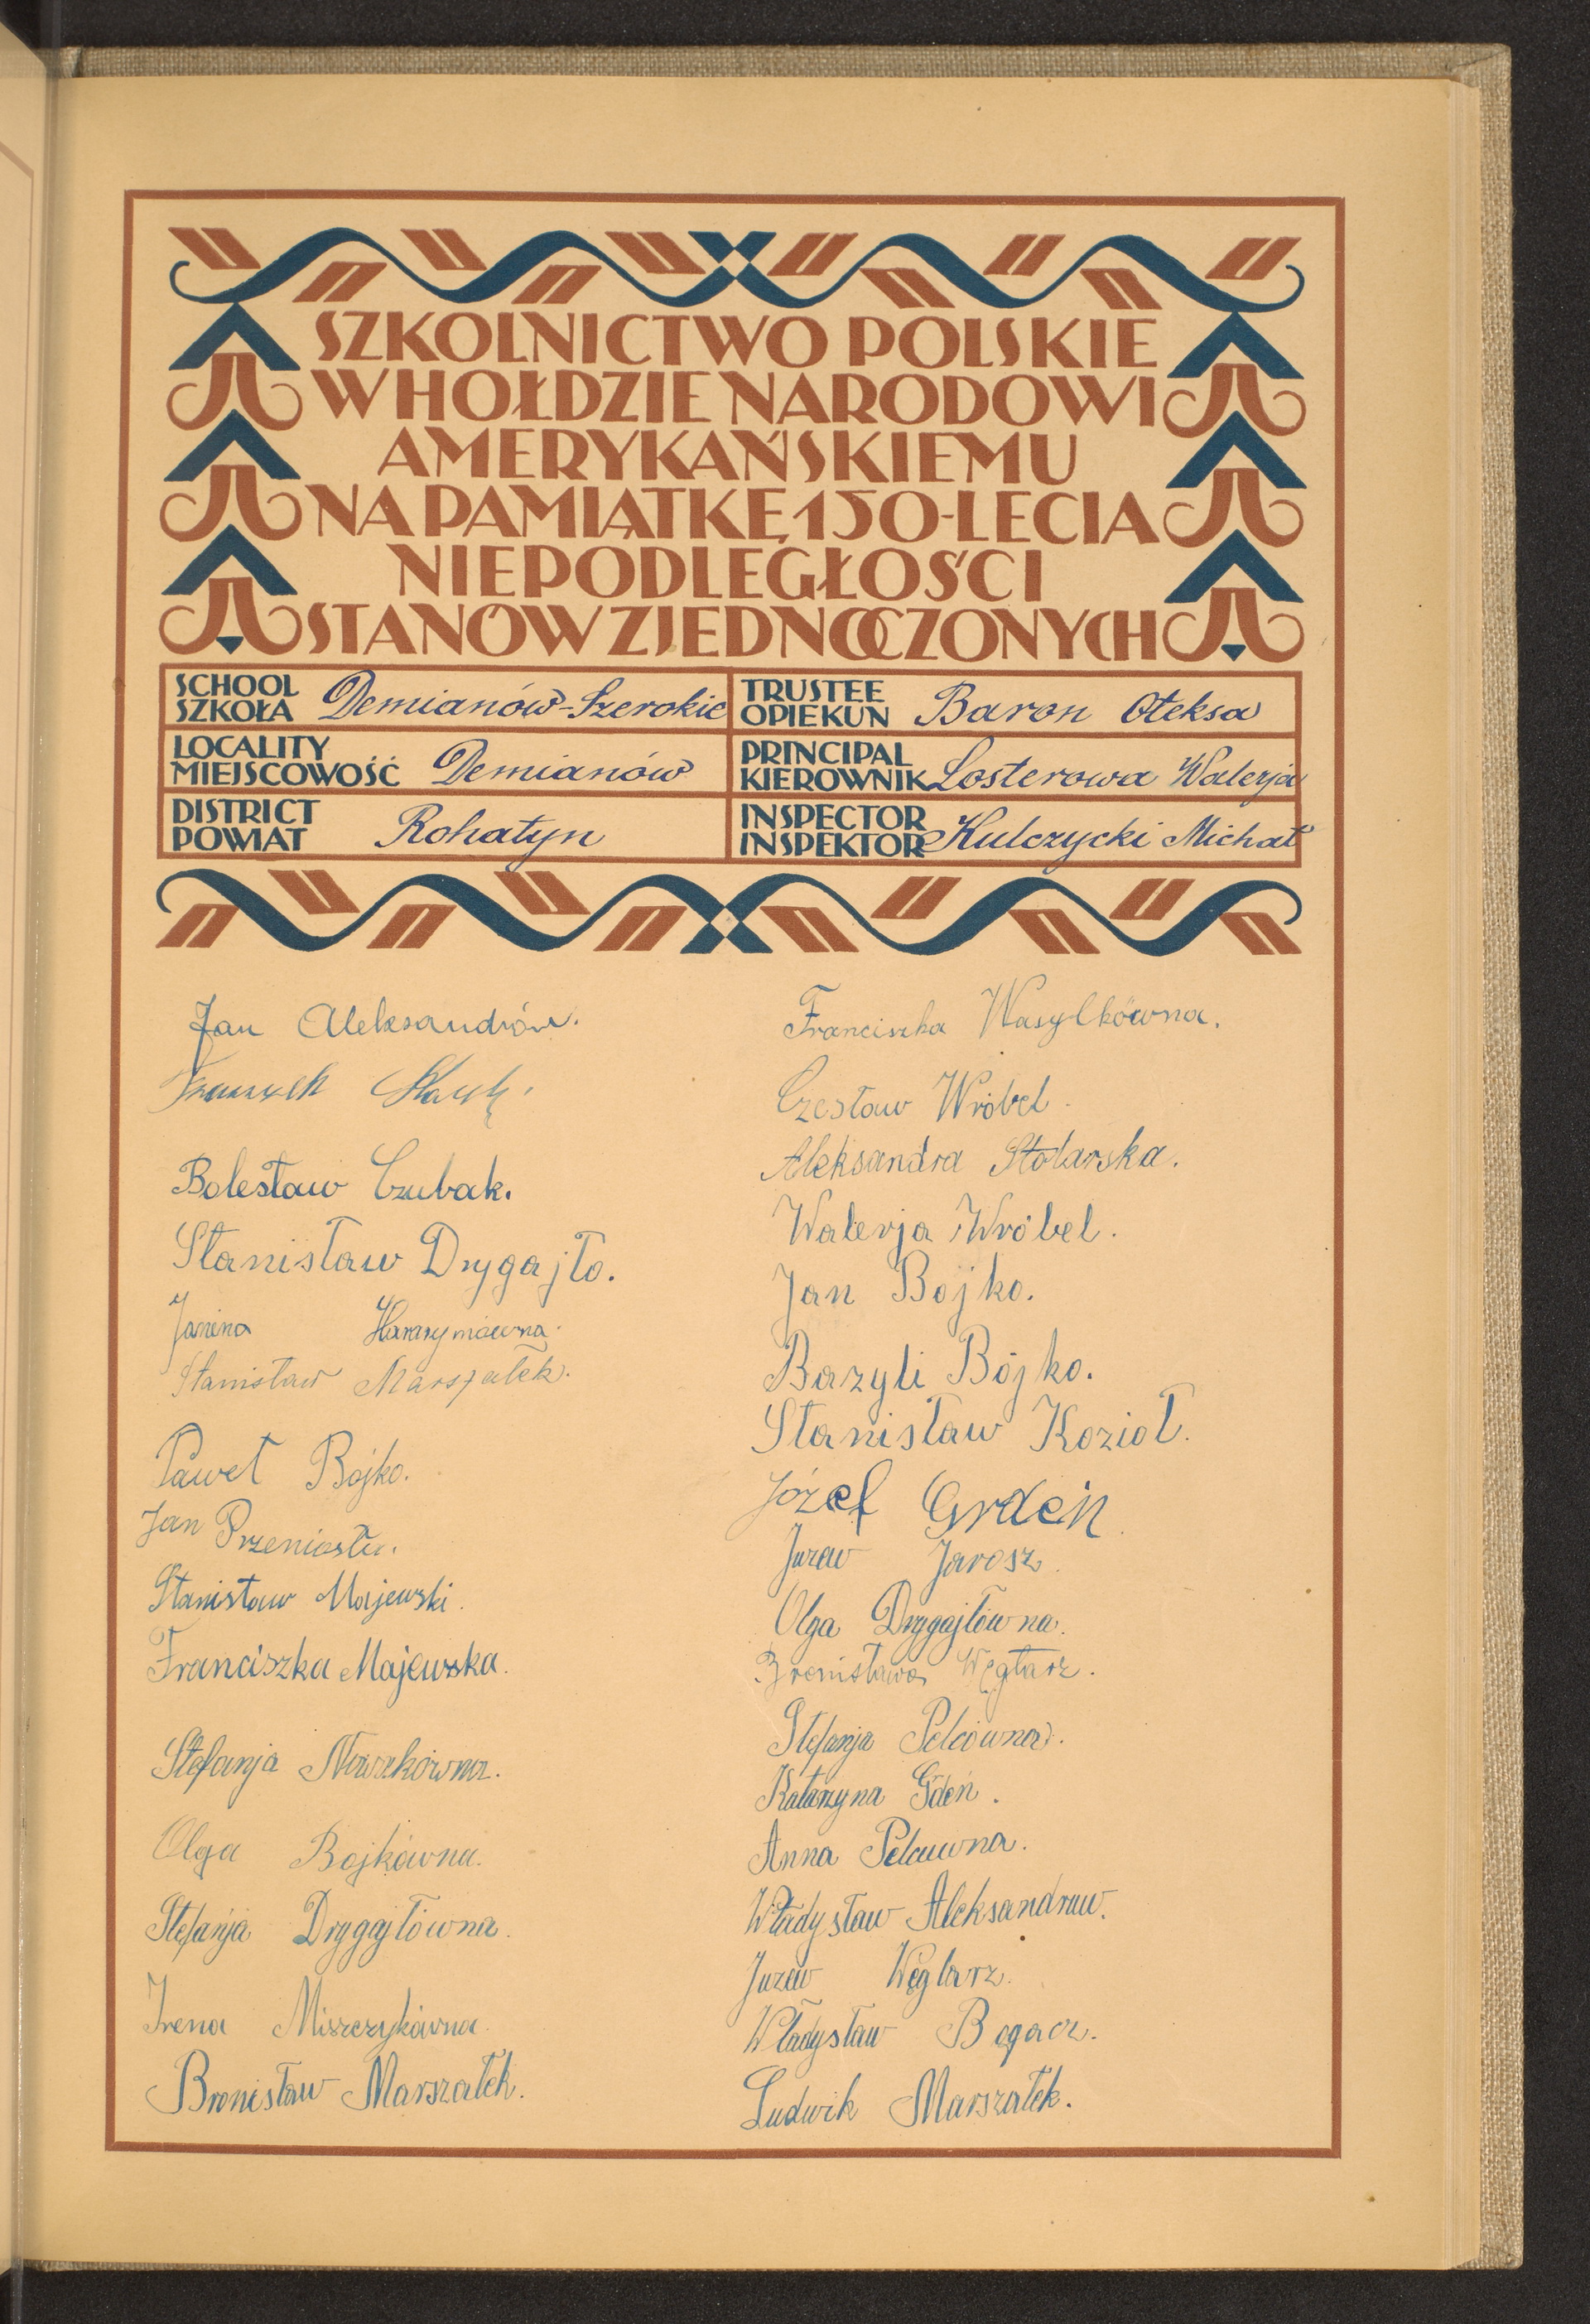 SZKOLNICTWO POLSKIE
W HOŁDZIE NARODOWI
AMERYKAŃSKIEMU
NA PAMIĄTKĘ 150-LECIA
NIEPODLEGŁOŚCI
STANÓW ZJEDNOCZONYCH
SCHOOL
SZKOŁA Demianów-Szerokie
LOCALITY
MIEJSCOWOŚĆ Demianów
DISTRICT
POWIAT Rohatyn
TRUSTEE
OPIEKUN Baron Ołeksa
PRINCIPAL
KIEROWNIK Losterowa Walerja
INSPECTOR
INSPEKTOR Kulczycki Michał
Jan Aleksandrów.
Bolesław Czubak.
Stanisław Drygajło.
Janina Harasymówna.
Stanisław Marszałek.
Paweł Bojko.
Jan Przeniosło.
Stanisław Majewski.
Franciszka Majewska.
Stefanja
Olga Bojkówna.
Stefanja Drygajłówna.
Irena Miszczykówna.
Bronisław Marszałek.
Franciszka Wasylkówna.
Czesław Wróbel.
Aleksandra Stolarska.
Walerja Wróbel.
Jan Bójko.
Bazyli Bójko.
Stanisław Kozioł.
Józef Grdeń.
Juzew Jarosz.
Olga Drygajłówna.
Bronisława Węglarz.
Stefanja Pelcówna.
Katarzyna Gdeń.
Anna Pelcuwna.
Władysław Aleksandruw.
Juzew Węglarz.
Władysław Bogacz.
Ludwik Marszałek.